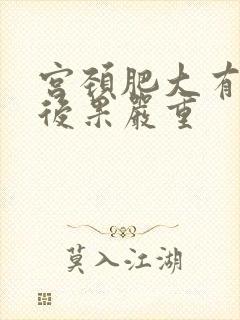 宮頚肥大有
後果嚴重
莫入江湖